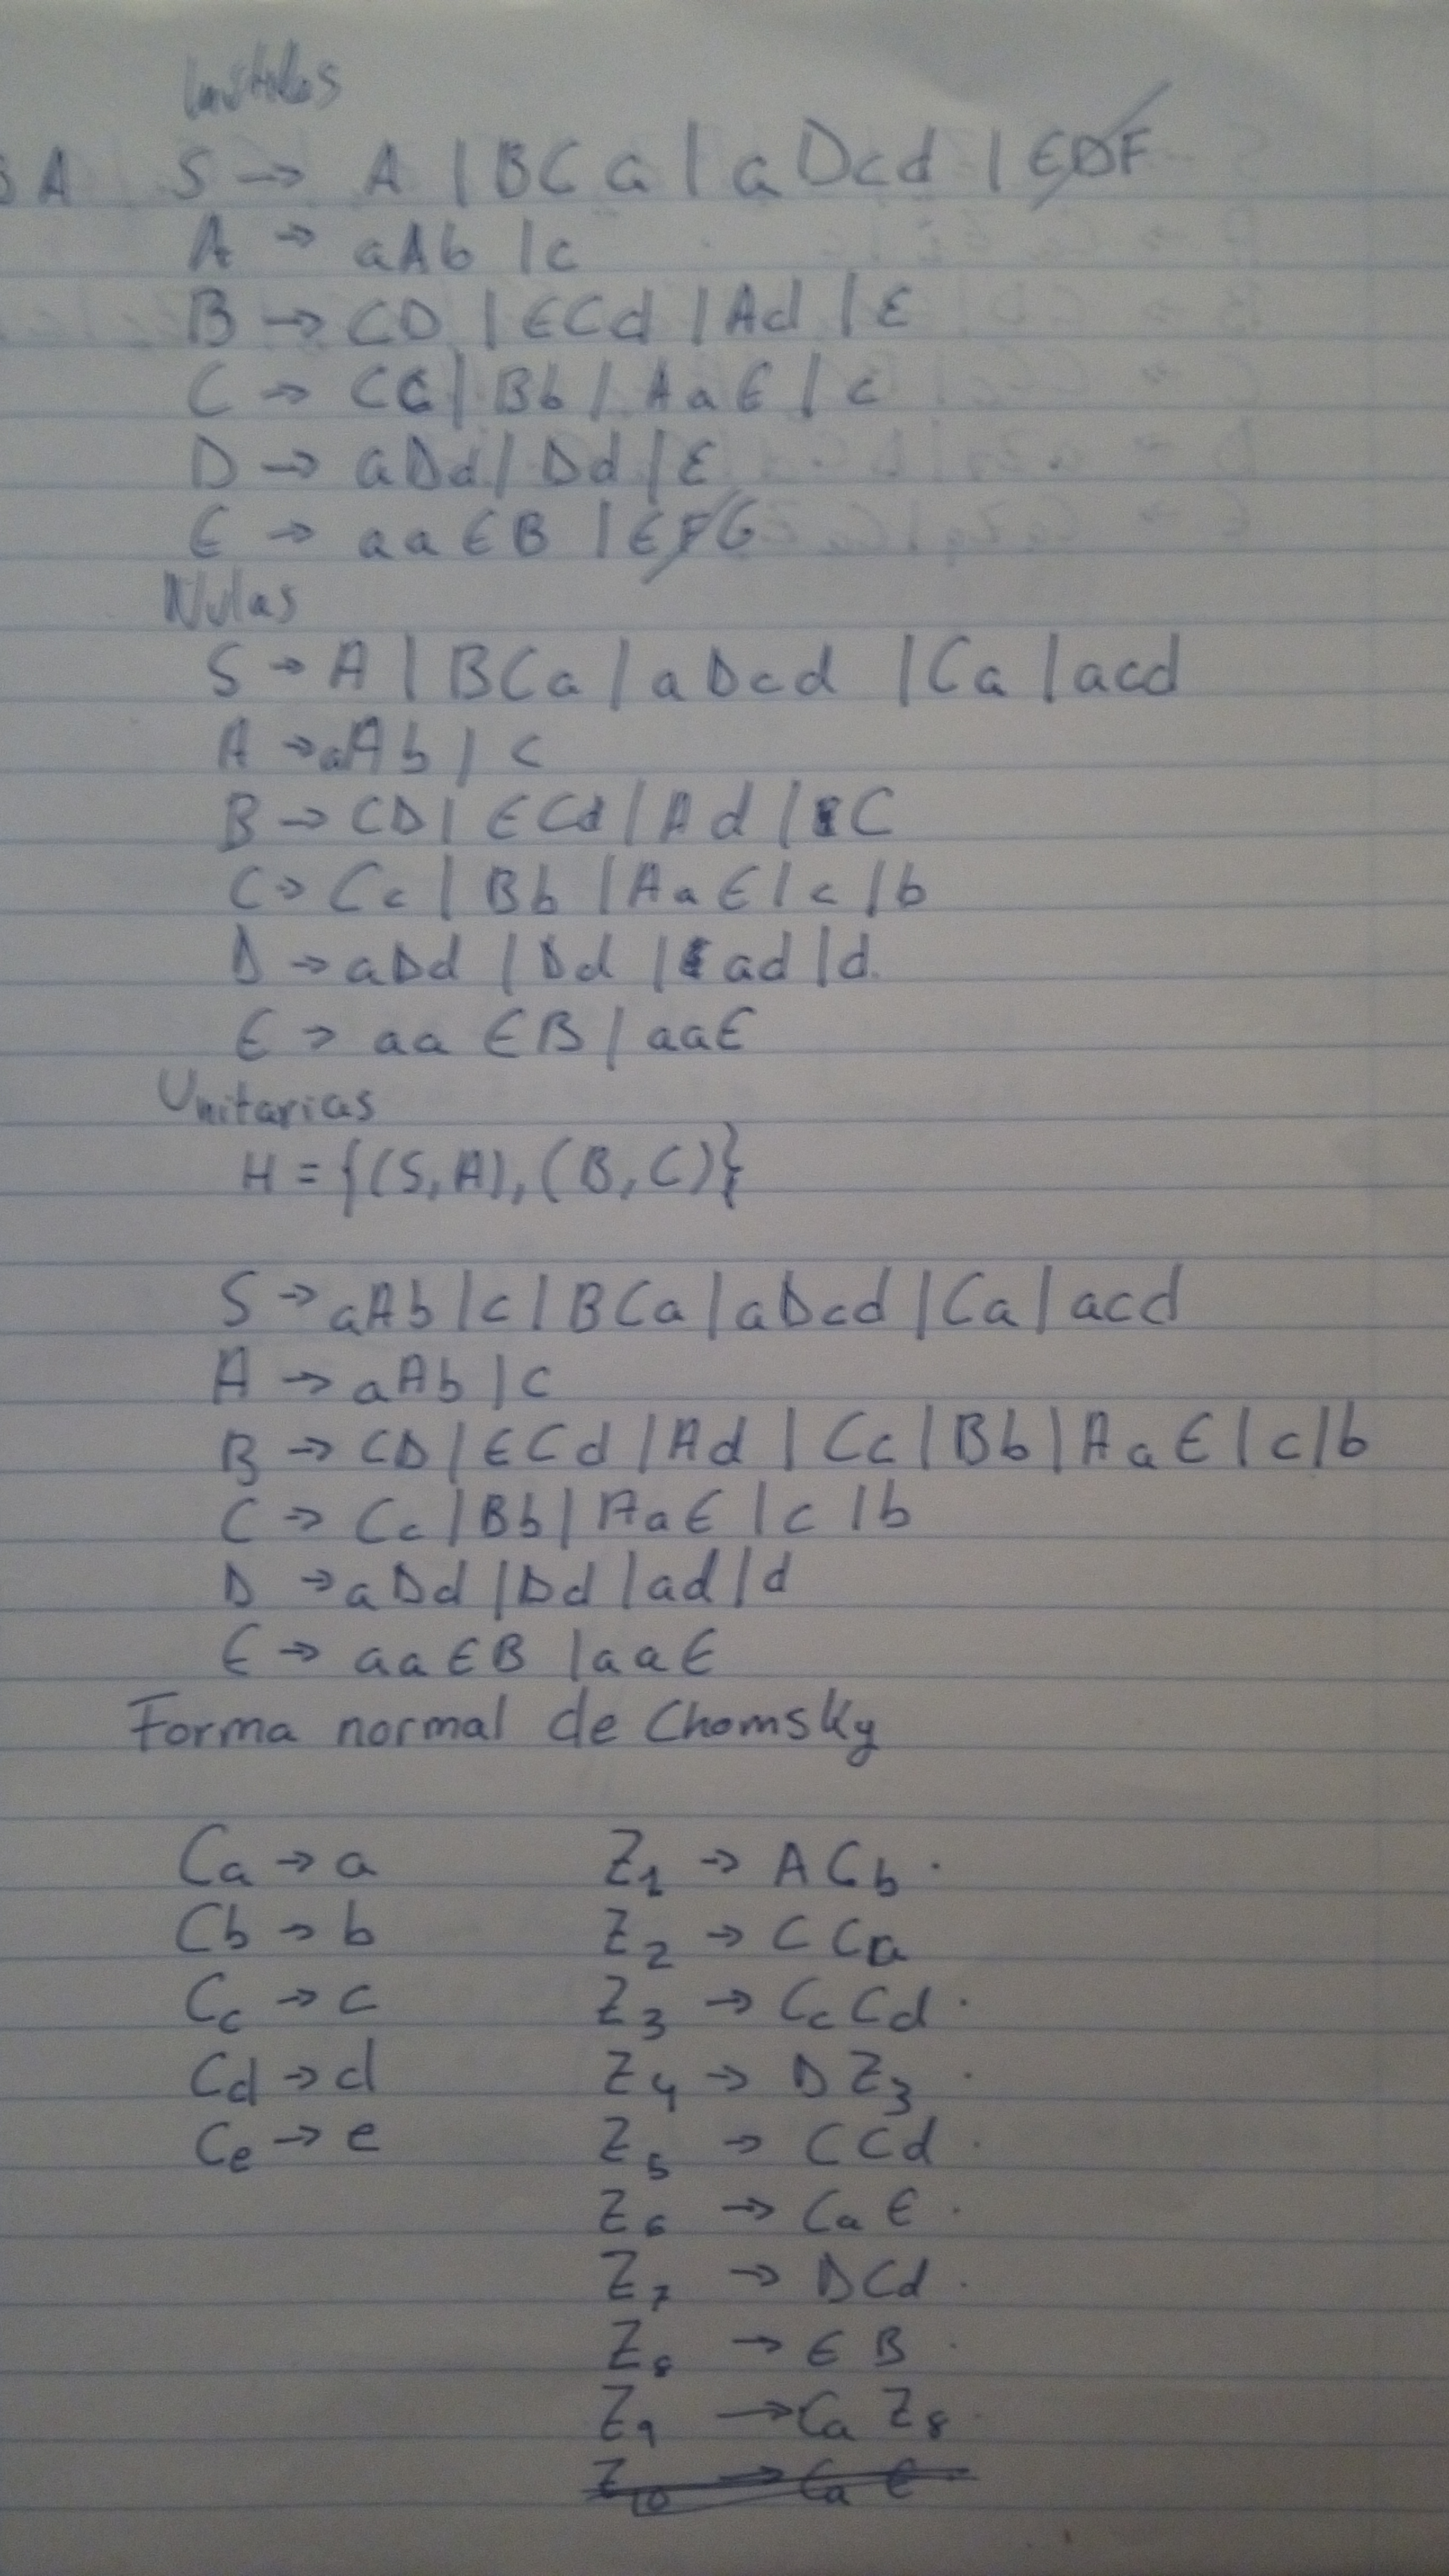 Inutiles
A S → A | BCa | aDcd | EDF
A → aAb | c
B → CD | ECd | Ad | ε
C → Cc | Bb | AaE | c
D → aDd | Dd | ε
E → aaEB | EFG
Nulas
S → A | BCa | aDcd | Ca | acd
A → aAb | c
B → CD | ECd | Ad | C
C → Cc | Bb | AaE | c | b
D → aDd | Dd | ad | d
E → aaEB | aaE
Unitarias
H = {(S,A), (B,C)}
S → aAb | c | BCa | aDcd | Ca | acd
A → aAb | c
B → CD | ECd | Ad | Cc | Bb | AaE | c | b
C → Cc | Bb | AaE | c | b
D → aDd | Dd | ad | d
E → aaEB | aaE
Forma normal de Chomsky
Ca → a Z1 → ACb
Cb → b Z2 → CCa
Cc → c Z3 → CcCd
Cd → d Z4 → DZ3
Ce → e Z5 → CCd
Z6 → CaE
Z7 → DCd
Z8 → EB
Z9 → CaZ8
Z10 → CaE